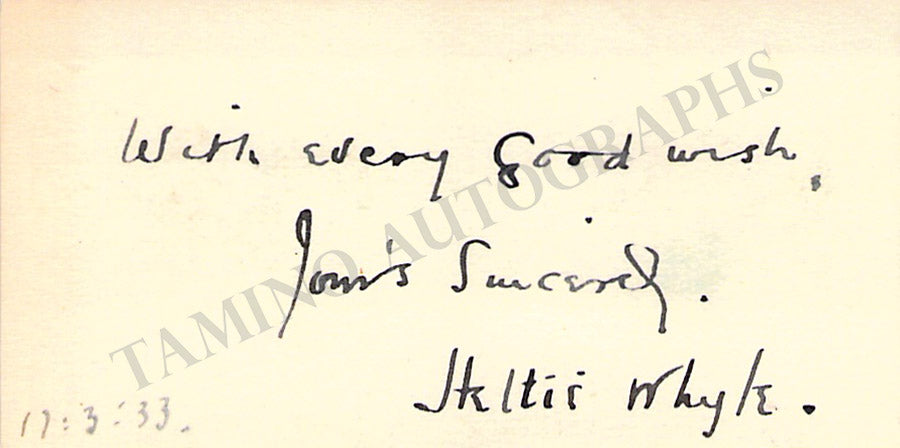 With every good wish,
Your's Sincerely.
Whyte.
17:3:33.
TAMINO AUTOGRAPHS